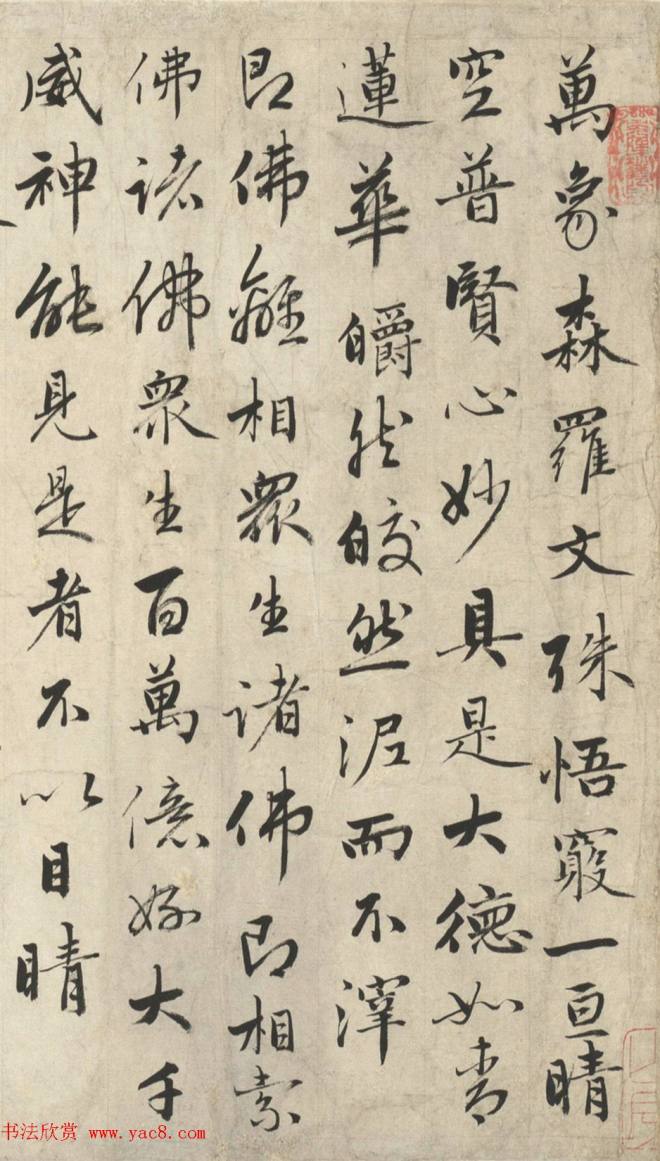 萬象森羅文殊悟窮一亘晴
空普賢心妙具是大德如青
蓮華皭然皎然泥而不滓
即佛離相眾生諸佛即相索
佛諸佛眾生百萬億姟大千
威神能見是者不以目睛
书法欣赏 www.yac8.com